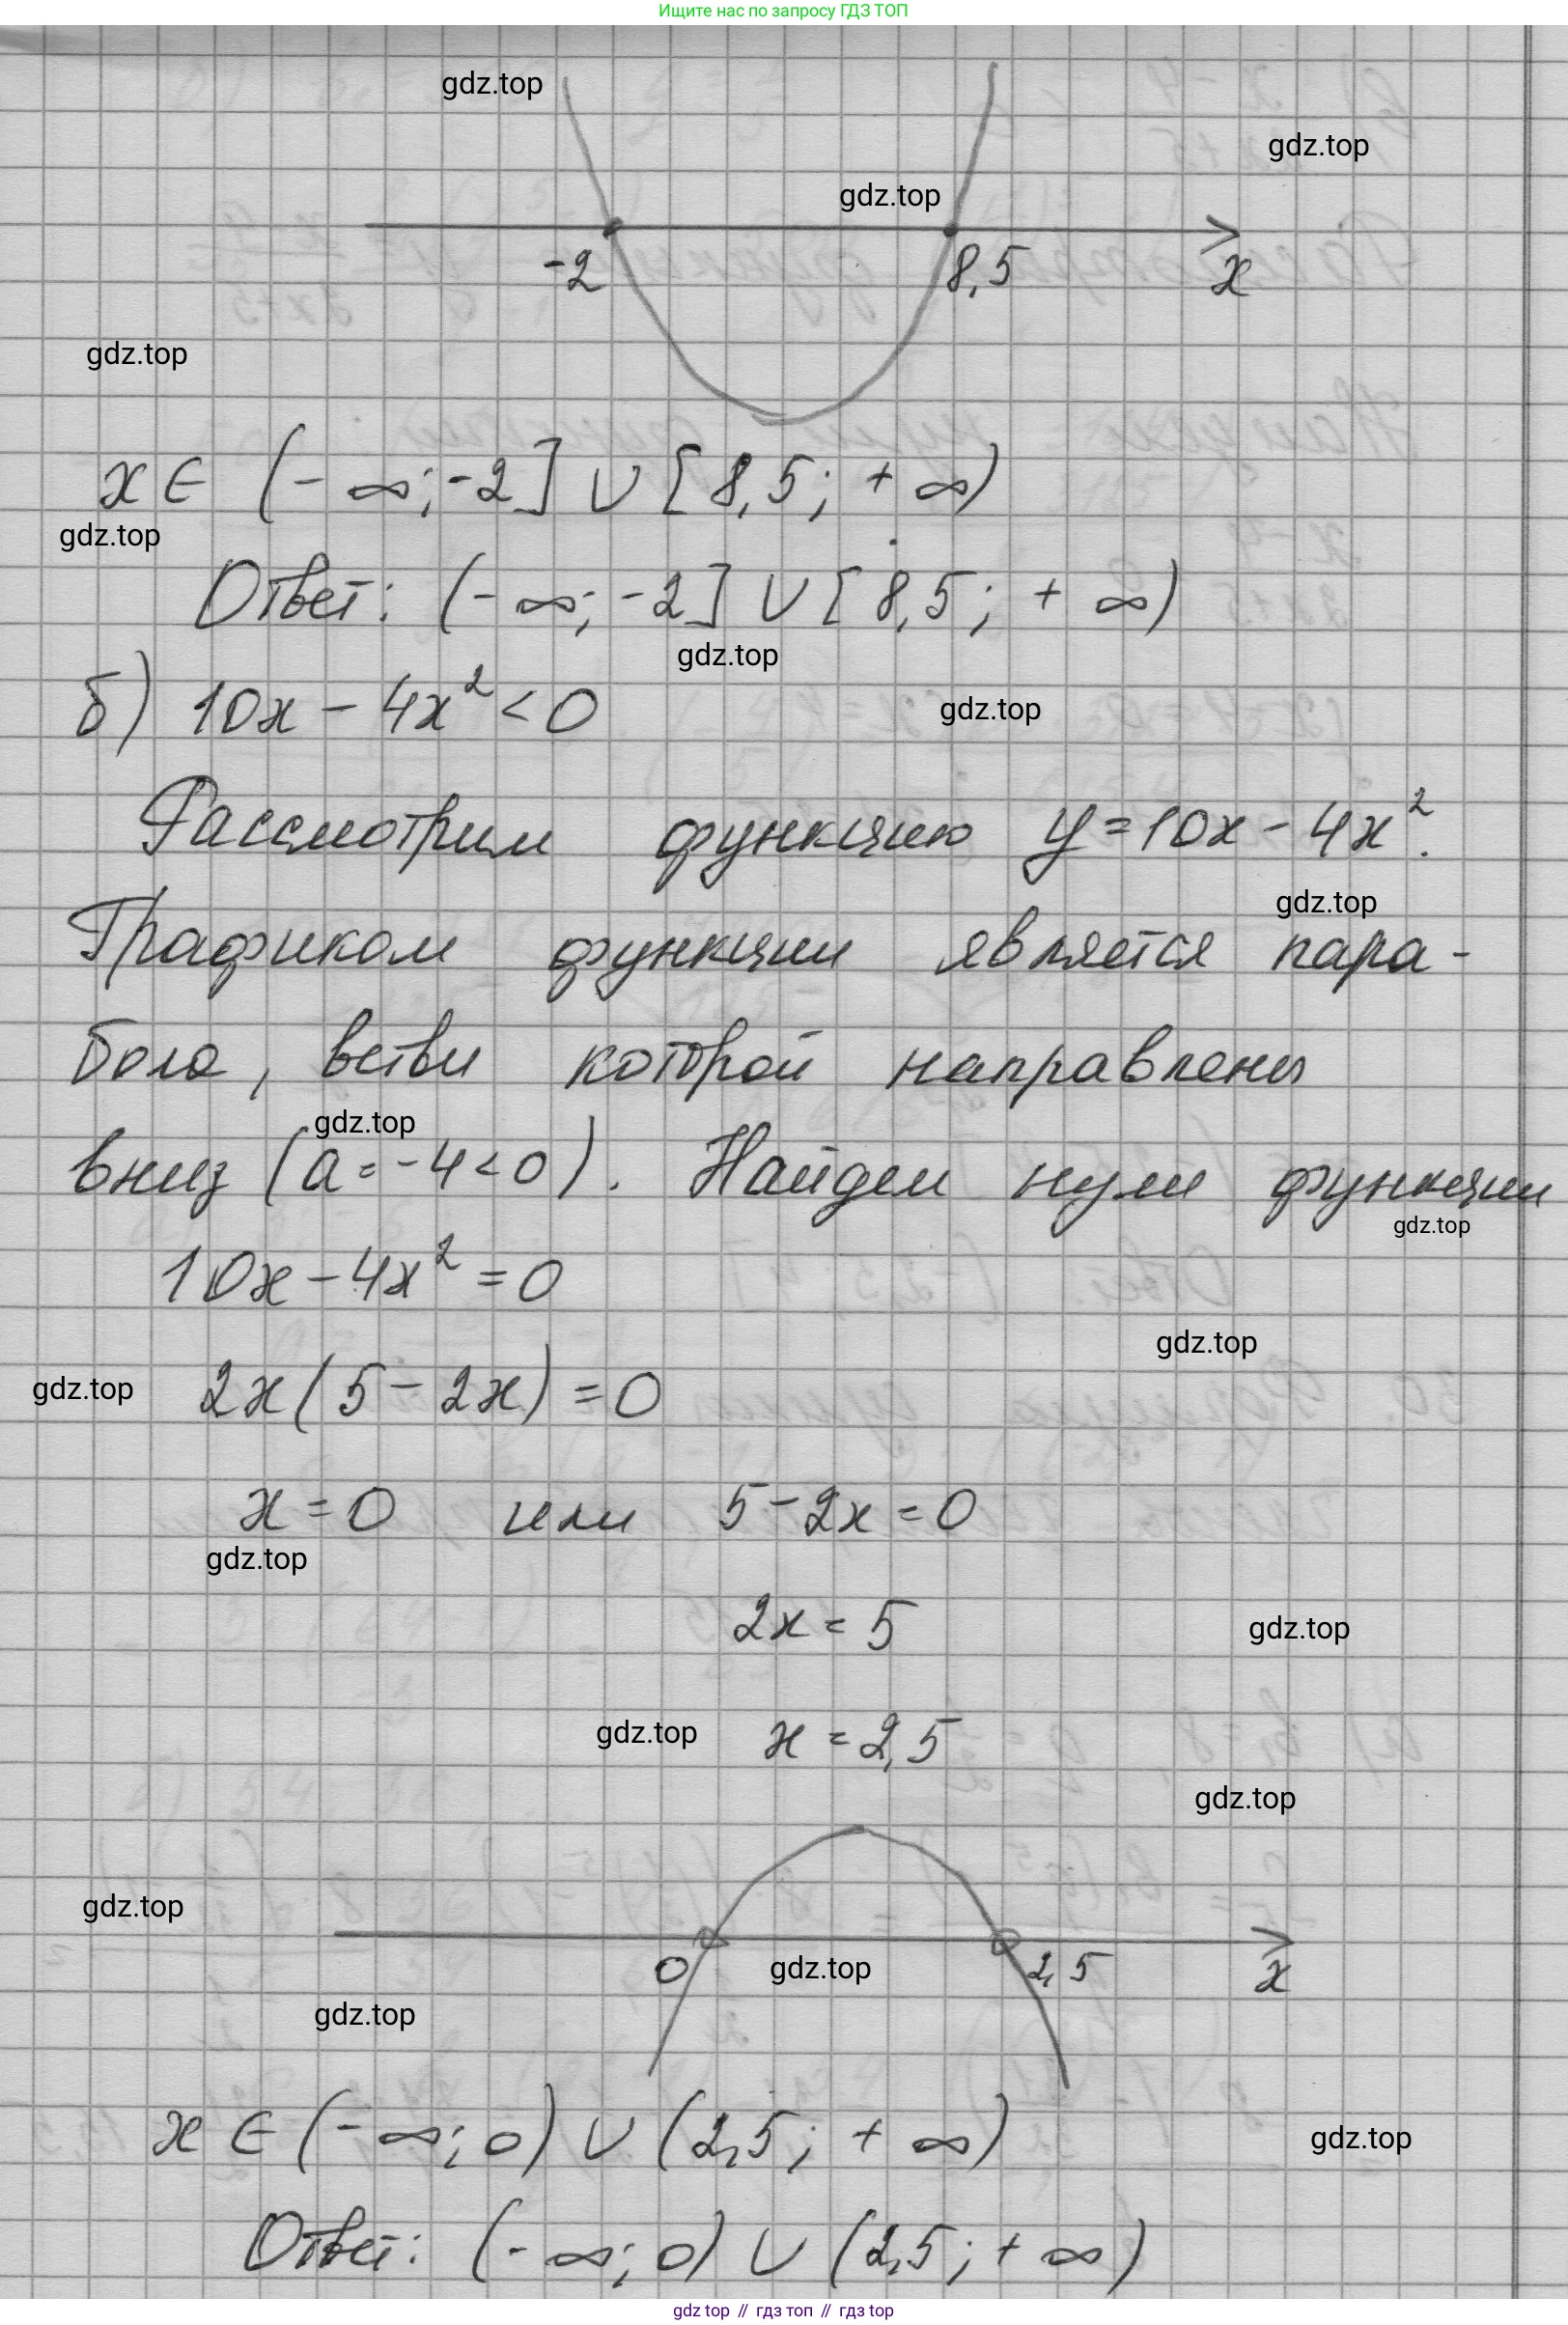 Ищите нас по запросу ГДЗ ТОП
gdz.top
gdz.top
gdz.top
-2 8,5 x
gdz.top
x ∈ (-∞; -2] ∪ [8,5; +∞)
gdz.top
Ответ: (-∞; -2] ∪ [8,5; +∞)
gdz.top
б) 10x - 4x² < 0
gdz.top
Рассмотрим функцию y = 10x - 4x².
gdz.top
Графиком функции является пара-
бола, ветви которой направлены
gdz.top
вниз (a = -4 < 0). Найдем нули функции
gdz.top
10x - 4x² = 0
gdz.top
gdz.top
2x(5 - 2x) = 0
x = 0 или 5 - 2x = 0
gdz.top
2x = 5
gdz.top
gdz.top
x = 2,5
gdz.top
gdz.top
0 gdz.top 2,5 x
gdz.top
x ∈ (-∞; 0) ∪ (2,5; +∞)
gdz.top
Ответ: (-∞; 0) ∪ (2,5; +∞)
gdz top // гдз топ // гдз top